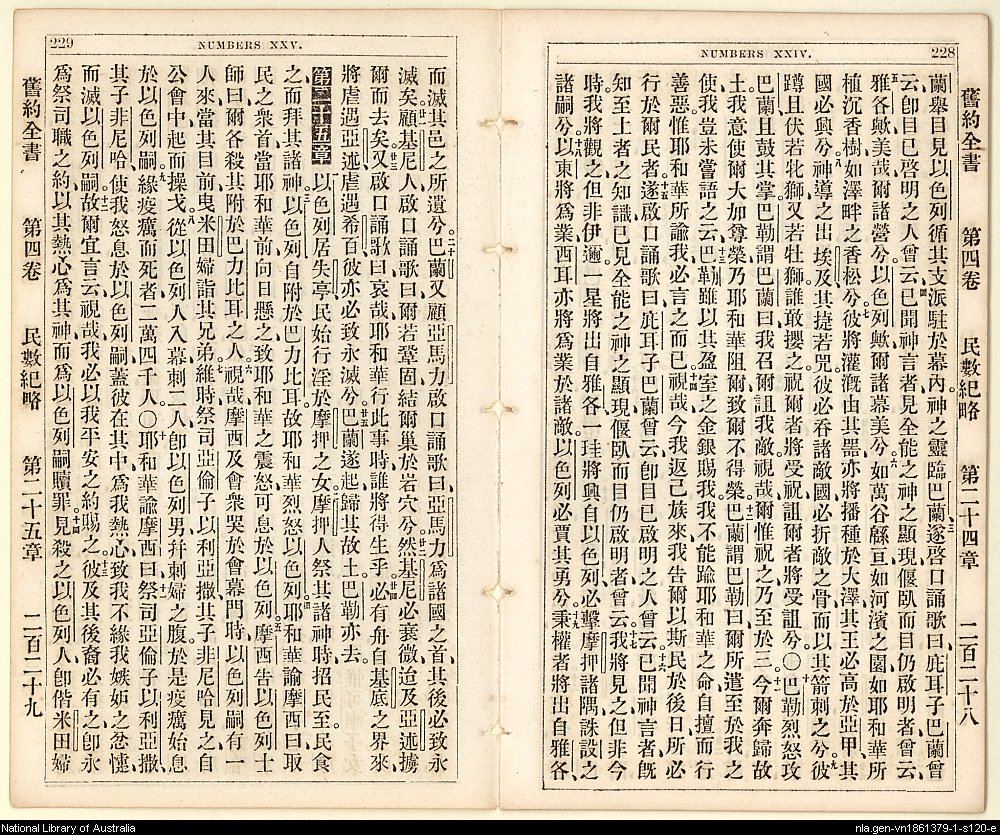 228
NUMBERS XXIV.
舊約全書 第四卷 民數紀略 第二十四章 二百二十八
蘭舉目見以色列循其支派駐於幕內神之靈臨巴蘭遂啓口誦歌曰庇耳子巴蘭曾
云卽目已啓明之人曾云已聞神言者見全能之神之顯現偃臥而目仍啟明者曾云
雅各歟美哉爾諸營兮以色列歟爾諸幕美兮如萬谷緜亘如河濱之園如耶和華所
植沉香樹如澤畔之香松兮彼將灌漑由其器亦將播種於大澤其王必高於亞甲其
國必興兮神導之出埃及其捷若兕彼必吞諸敵國必折敵之骨而以其箭刺之兮彼
蹲且伏若牝獅又若牡獅誰敢攖之祝爾者將受祝詛爾者將受詛兮〇巴勒烈怒攻
巴蘭且鼓其掌巴勒謂巴蘭曰我召爾詛我敵視哉爾惟祝之乃至於三今爾奔歸故
土我意使爾大加尊榮乃耶和華阻爾致爾不得榮巴蘭謂巴勒曰爾所遣至於我之
使我豈未嘗語之云巴勒雖以其盈室之金銀賜我我不能踰耶和華之命自擅而行
善惡惟耶和華所諭我必言之而已視哉今我返己族來我告爾以斯民於後日所必
行於爾民者遂啟口誦歌曰庇耳子巴蘭曾云卽目已啟明之人曾云已聞神言者旣
知至上者之知識已見全能之神之顯現偃臥而目仍啟明者曾云我將見之但非今
時我將觀之但非伊邇一星將出自雅各一珪將興自以色列必擊摩押諸隅誅設之
諸嗣兮以東將爲業西耳亦將爲業於諸敵以色列必賈其勇兮秉權者將出自雅各
229
NUMBERS XXV.
而滅其邑之所遺兮巴蘭又顧亞馬力啟口誦歌曰亞馬力爲諸國之首其後必致永
滅矣顧基尼人啟口誦歌曰爾若鞏固結爾巢於岩穴兮然基尼必衰微迨及亞述擄
爾而去矣又啟口誦歌曰哀哉耶和華行此事時誰將得生乎必有舟自基底之界來
將虐遇亞述虐遇希百彼亦必致永滅兮巴蘭遂起歸其故土巴勒亦去
第二十五章 以色列居失亭民始行淫於摩押之女摩押人祭其諸神時招民至民食
之而拜其諸神以色列自附於巴力比耳故耶和華烈怒以色列耶和華諭摩西曰取
民之衆首當耶和華前向日懸之致耶和華之震怒可息於以色列摩西告以色列士
師曰爾各殺其附於巴力比耳之人視哉摩西及會衆哭於會幕門時以色列嗣有一
人來當其目前曳米田婦詣其兄弟維時祭司亞倫子以利亞撒其子非尼哈見之自
公會中起而操戈從以色列人入幕刺二人卽以色列男幷刺婦之腹於是疫癘始息
於以色列嗣緣疫癘而死者二萬四千人〇耶和華諭摩西曰祭司亞倫子以利亞撒
其子非尼哈使我怒息於以色列嗣蓋彼在其中爲我熱心致我不緣我嫉妒之忿懥
而滅以色列嗣故爾宜言云視哉我必以我平安之約賜之彼及其後裔必有之卽永
爲祭司職之約以其熱心爲其神而爲以色列嗣贖罪見殺之以色列人卽偕米田婦
舊約全書 第四卷 民數紀略 第二十五章 二百二十九
National Library of Australia
nla.gen-vn1861379-1-s120-e